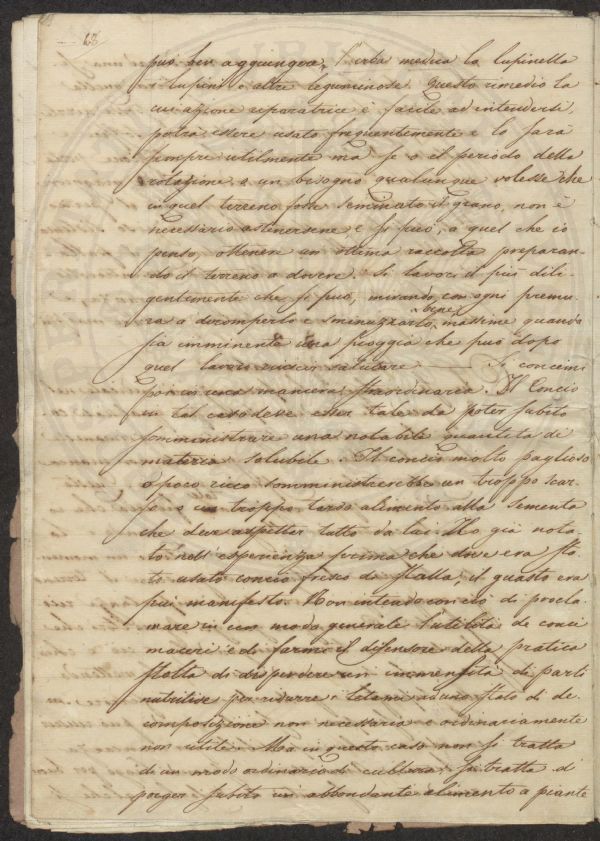 può ben aggiungere, l'erba medica la lupinella
i lupini o altre leguminose. Questo rimedio la
cui azione riparatrice è facile ad intendersi,
potrà essere usato frequentemente e lo sarà
sempre utilmente ma se o il periodo della
rotazione, o un bisogno qualunque volesse che
in quel terreno fosse seminato il grano, non è
necessario astenersene e si può, a quel che io
penso, ottenere un ottima raccolta preparan-
do il terreno a dovere. Si lavori il più dili-
gentemente che si può, mirando con ogni premu-
ra a diromperlo e sminuzzarlo bene, massime quando
sia imminente una pioggia che può dopo
quel lavoro riuscir salutare — Si concimi
poi in una maniera straordinaria. Il Concio
in tal caso deve esser tale da poter subito
somministrare una notabile quantità di
materia solubile. Il concio molto paglioso
o poco ricco somministrerebbe un troppo scar-
so o un troppo tardo alimento alla sementa
che deve aspettar tutto da lui. Ho già nota-
to nell'esperienza prima che dove era sta-
to usato concio fresco di stalla, il guasto era
più manifesto. Non intendo con ciò di procla-
mare in un modo generale l'utilità de conci
maceri e di farmi il difensore della pratica
stolta di disperdere un immensità di parti
nutritive per ridurre i letami ad uno stato di de-
composizione non necessaria e ordinariamente
non utile. Ma in questo caso non si tratta
di un modo ordinario di cultura, si tratta di
porger subito un abbondante alimento a piante